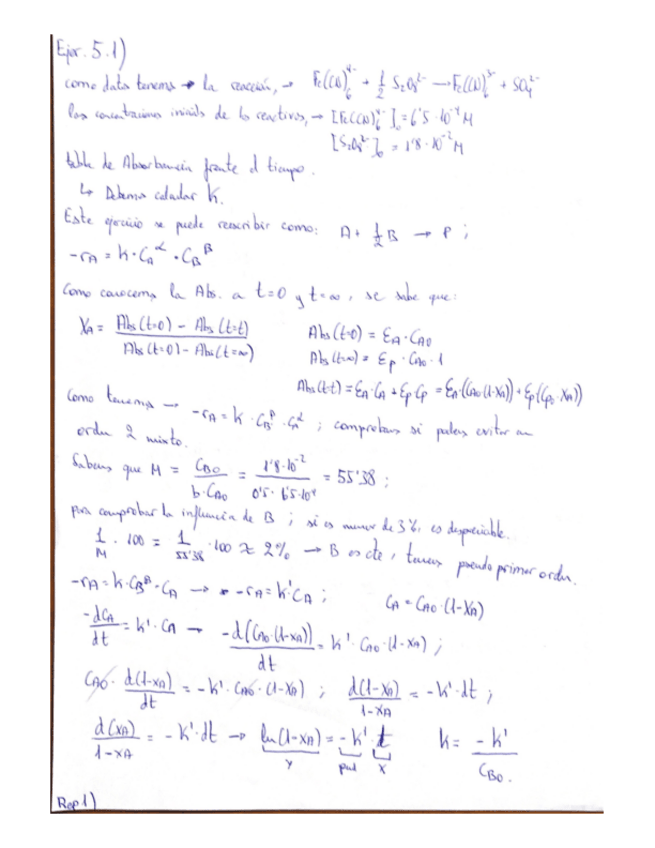 Ejer. 5.1)
como datos tenemos → la reacción, → Fe(CN)₆⁴⁻ + 1/2 S₂O₈²⁻ → Fe(CN)₆³⁻ + SO₄²⁻
las concentraciones iniciales de los reactivos, → [Fe(CN)₆⁴⁻]₀ = 6'5·10⁻⁴ M
[S₂O₈²⁻]₀ = 1'8·10⁻² M
tabla de Absorbancia frente al tiempo.
↳ Debemos calcular K.
Este ejercicio se puede reescribir como: A + 1/2 B → P ;
-rA = K·CA^α·CB^β
Como conocemos la Abs. a t=0 y t=∞, se sabe que:
XA = (Abs(t=0) - Abs(t=t)) / (Abs(t=0) - Abs(t=∞))
Abs(t=0) = EA·CA0
Abs(t=∞) = Ep·CA0·1
Abs(t=t) = EA·CA + Ep·Cp = EA·(CA0(1-XA)) + Ep(Cp0·XA)
Como tenemos → -rA = K·CB^β·CA^α ; comprobamos si podemos evitar un
orden 2 mixto.
Sabemos que M = CB0 / (b·CA0) = 1'8·10⁻² / (0'5·6'5·10⁻⁴) = 55'38 ;
para comprobar la influencia de B ; si es menor de 3% es despreciable.
1/M · 100 = 1/55'38 · 100 ≈ 2% → B es cte, tenemos pseudo primer orden.
-rA = K·CB^β·CA → -rA = K'CA ; CA = CA0·(1-XA)
-dCA/dt = K'·CA → -d(CA0·(1-XA))/dt = K'·CA0·(1-XA) ;
CA0·d(1-XA)/dt = -K'·CA0·(1-XA) ; d(1-XA)/(1-XA) = -K'·dt ;
d(XA)/(1-XA) = -K'·dt → ln(1-XA) = -K' t K = -K'/CB0.
y pend x
Rep 1)